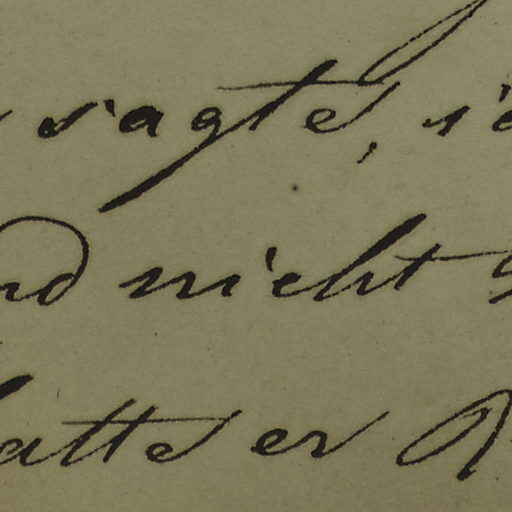 sagte,
nd nicht
atte er